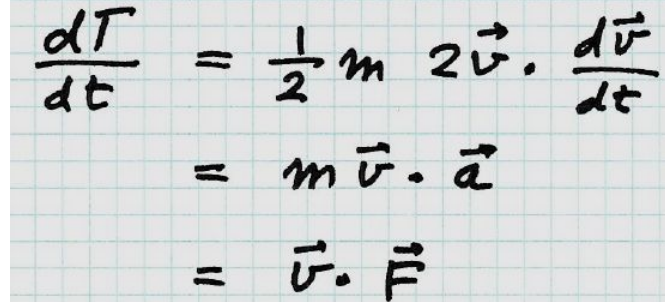 dT/dt = 1/2 m 2v⃗ · dv⃗/dt
= m v⃗ · a⃗
= v⃗ · F⃗